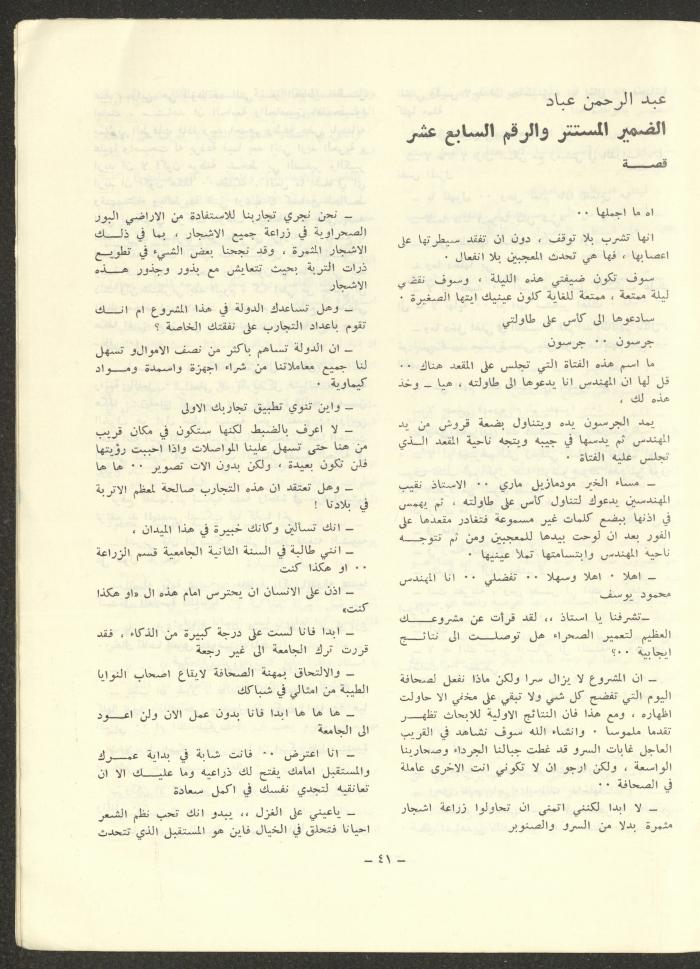 عبد الرحمن عباد
الضمير المستتر والرقم السابع عشر
قصـــة
اه ما اجملها ٠٠
انها تشرب بلا توقف ، دون ان تفقد سيطرتها على
اعصابها ، فها هي تحدث المعجبين بلا انفعال ٠
سوف تكون ضيفتي هذه الليلة ، وسوف نقضي
ليلة ممتعة ، ممتعة للغاية كلون عينيك ايتها الصغيرة ٠
سادعوها الى كاس على طاولتي
جرسون ٠٠ جرسون
ما اسم هذه الفتاة التي تجلس على المقعد هناك ٠٠
قل لها ان المهندس انا يدعوها الى طاولته ، هيا ــ وخذ
هذه لك ،
يمد الجرسون يده ويتناول بضعة قروش من يد
المهندس ثم يدسها في جيبه ويتجه ناحية المقعد الــذي
تجلس عليه الفتاة ٠
ــ مساء الخير مودمازيل ماري ٠٠ الاستاذ نقيب
المهندسين يدعوك لتناول كاس على طاولته ، ثم يهمس
في اذنها ببضع كلمات غير مسموعة فتغادر مقعدها على
الفور بعد ان لوحت بيدها للمعجبين ومن ثم تتوجــه
ناحية المهندس وابتسامتها تملا عينيها ٠
ــ اهلا ٠ اهلا وسهلا ٠٠ تفضلي ٠٠ انا المهندس
محمود يوسف
ــتشرفنا يا استاذ ،، لقد قرأت عن مشروعـــك
العظيم لتعمير الصحراء هل توصلــت الى نتائــج
ايجابية ٠٠؟
ــ ان المشروع لا يزال سرا ولكن ماذا نفعل لصحافة
اليوم التي تفضح كل شي ولا تبقي على مخفي الا حاولت
اظهاره ، ومع هذا فان النتائج الاولية للابحاث تظهــر
تقدما ملموسا ٠ وانشاء الله سوف نشاهد في القريب
العاجل غابات السرو قد غطت جبالنا الجرداء وصحارينا
الواسعة ، ولكن ارجو ان لا تكوني انت الاخرى عاملة
في الصحافة ٠٠
ــ لا ابدا لكنني اتمنى ان تحاولوا زراعة اشجار
مثمرة بدلا من السرو والصنوبر
ــ نحن نجري تجاربنا للاستفادة من الاراضي البور
الصحراوية في زراعة جميع الاشجار ، بما في ذلــك
الاشجار المثمرة ، وقد نجحنا بعض الشيء في تطويــع
ذرات التربة بحيث تتعايش مع بذور وجذور هـــذه
الاشجار
ــ وهل تساعدك الدولة في هذا المشروع ام انــك
تقوم باعداد التجارب على نفقتك الخاصة ؟
ــ ان الدولة تساهم باكثر من نصف الاموال‌و تسهل
لنا جميع معاملاتنا من شراء اجهزة واسمدة ومــواد
كيماوية ٠
ــ واين تنوي تطبيق تجاربك الاولى
ــ لا اعرف بالضبط لكنها ستكون في مكان قريب
من هنا حتى تسهل علينا المواصلات واذا احببت رؤيتها
فلن تكون بعيدة ، ولكن بدون الات تصوير ٠٠ ها ها
ــ وهل تعتقد ان هذه التجارب صالحة لمعظم الاتربة
في بلادنا !
ــ انك تسالين وكانك خبيرة في هذا الميدان ،
ــ انني طالبة في السنة الثانية الجامعية قسم الزراعة
٠٠ او هكذا كنت
ــ اذن على الانسان ان يحترس امام هذه ال «او هكذا
كنت»
ــ ابدا فانا لست على درجة كبيرة من الذكاء ، فقد
قررت ترك الجامعة الى غير رجعة
ــ والالتحاق بمهنة الصحافة لايقاع اصحاب النوايا
الطيبة من امثالي في شباكك
ــ ها ها ها ابدا فانا بدون عمل الان ولن اعــود
الى الجامعة
ــ انا اعترض ٠٠ فانت شابة في بداية عمــرك
والمستقبل امامك يفتح لك ذراعيه وما عليــك الا ان
تعانقيه لتجدي نفسك في اكمل سعادة
ــ ياعيني على الغزل ،، يبدو انك تحب نظم الشعر
احيانا فتحلق في الخيال فاين هو المستقبل الذي تتحدث
ــ ٤١ ــ